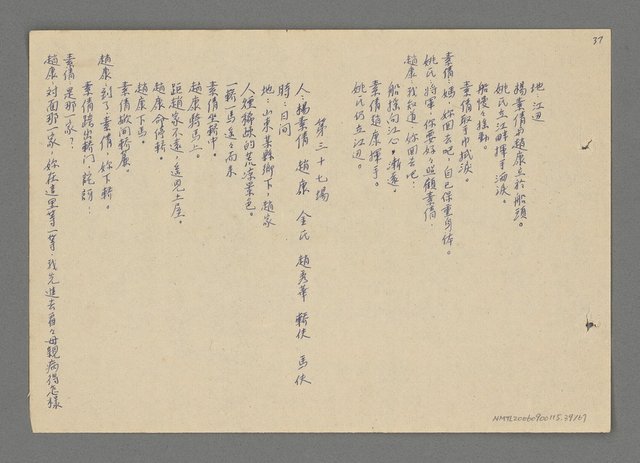 37
地：江边
楊素倩與趙康立於船頭。
姚氏立江畔揮手洒淚。
船慢々搖動。
素倩取手巾拭淚。
素倩：媽，妳回去吧，自己保重身体。
姚氏：將軍，你要好々照顧素倩。
趙康：我知道，妳回去吧：
船搖向江心，漸遠。
素倩趙康揮手。
姚氏仍立江边。
第三十七場
人：楊素倩　趙康　金氏　趙秀華　轎伕　馬伕
時：日间
地：山東某縣鄉下，趙家
人煙稀疎的荒凉景色。
一轎一馬遠々而来
素倩坐轎中。
趙康騎馬上。
距趙家不遠，遙見土屋。
趙康命停轎。
趙康下馬。
素倩掀開轎簾。
趙康：到了，素倩，妳下轎。
素倩踏出轎门，詫訝：
素倩：是那一家？
趙康：对面那一家，妳在這里等一等，我先進去看々母親病得怎樣
NMTL20060900115.39/67